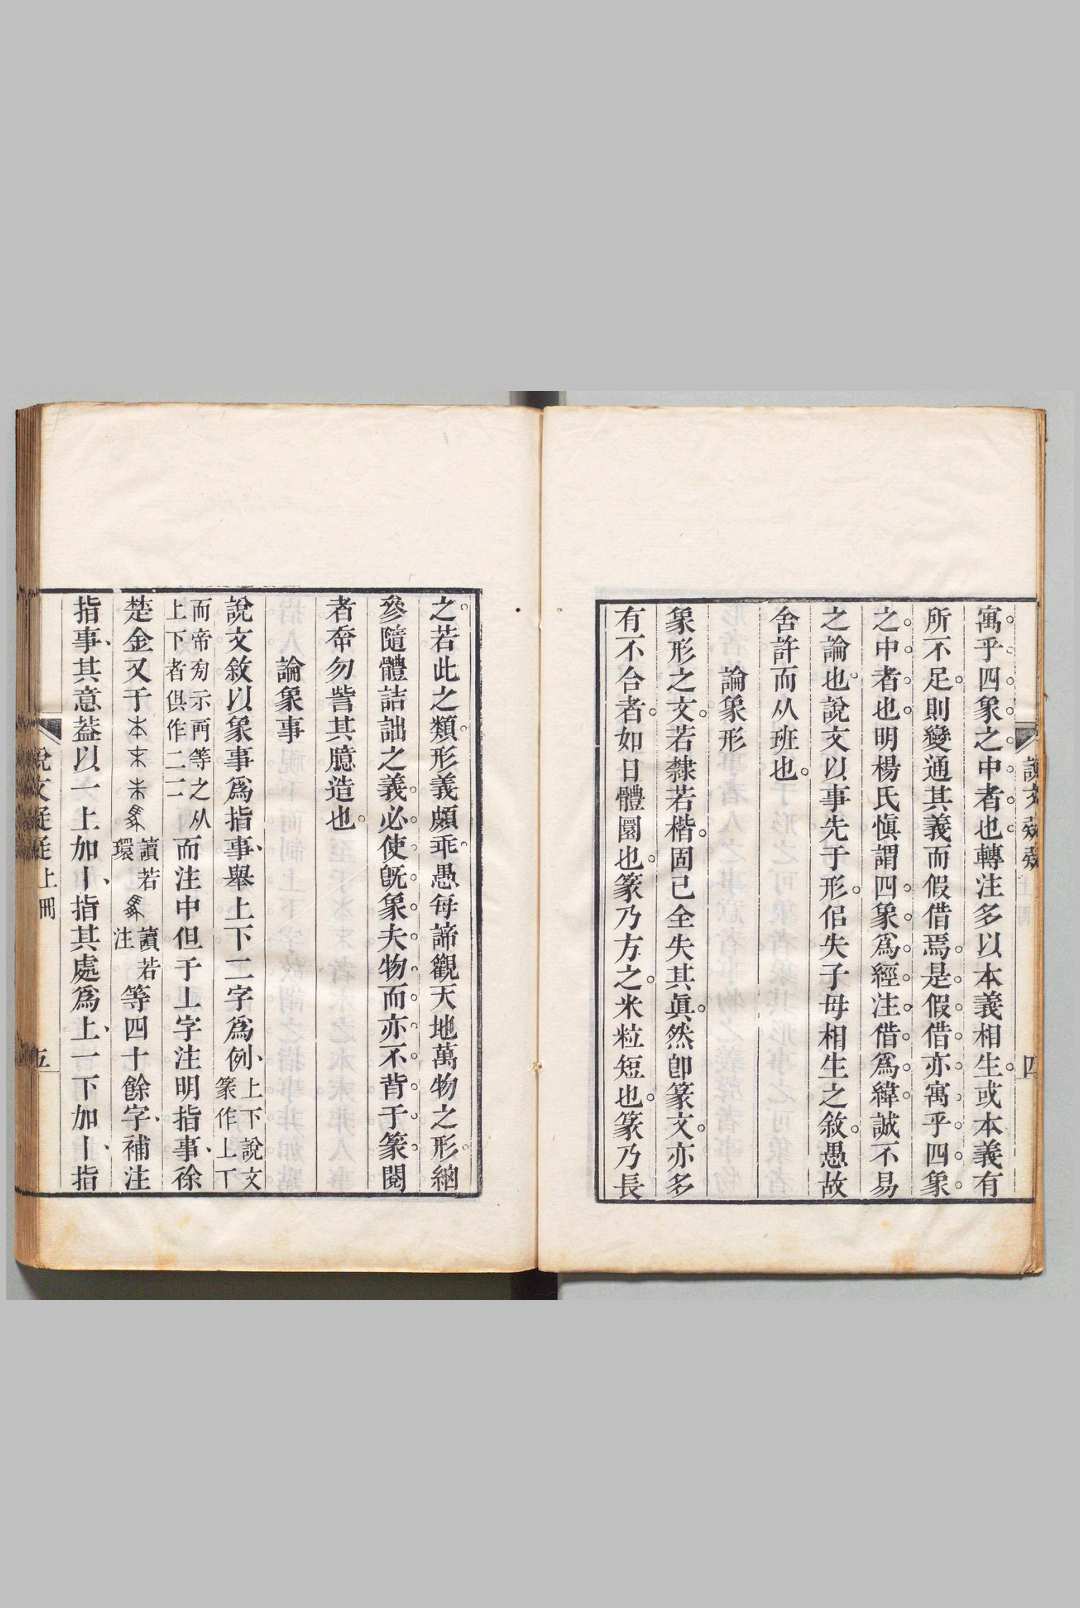 寓乎四象之中者也轉注多以本義相生或本義有
所不足則變通其義而假借焉是假借亦寓乎四象
之中者也明楊氏愼謂四象爲經注借爲緯誠不易
之論也說文以事先于形侣失子母相生之敘愚故
舍許而从班也
論象形
象形之文若隸若楷固已全失其眞然卽篆文亦多
有不合者如日體圜也篆乃方之米粒短也篆乃長
四
之若此之類形義頗乖愚每諦觀天地萬物之形緬
參隨體詰詘之義必使旣象夫物而亦不背于篆閱
者奋勿訾其臆造也
論象事
說文敘以象事爲指事舉上下二字爲例上下說文
篆作丄丅
而帝旁示兩等之从
上下者俱作二二而注中但于丄字注明指事徐
楚金又于本末朱
讀若
環
讀若
注等四十餘字補注
指事其意葢以一上加丨指其處爲上一下加丨指
上冊
五